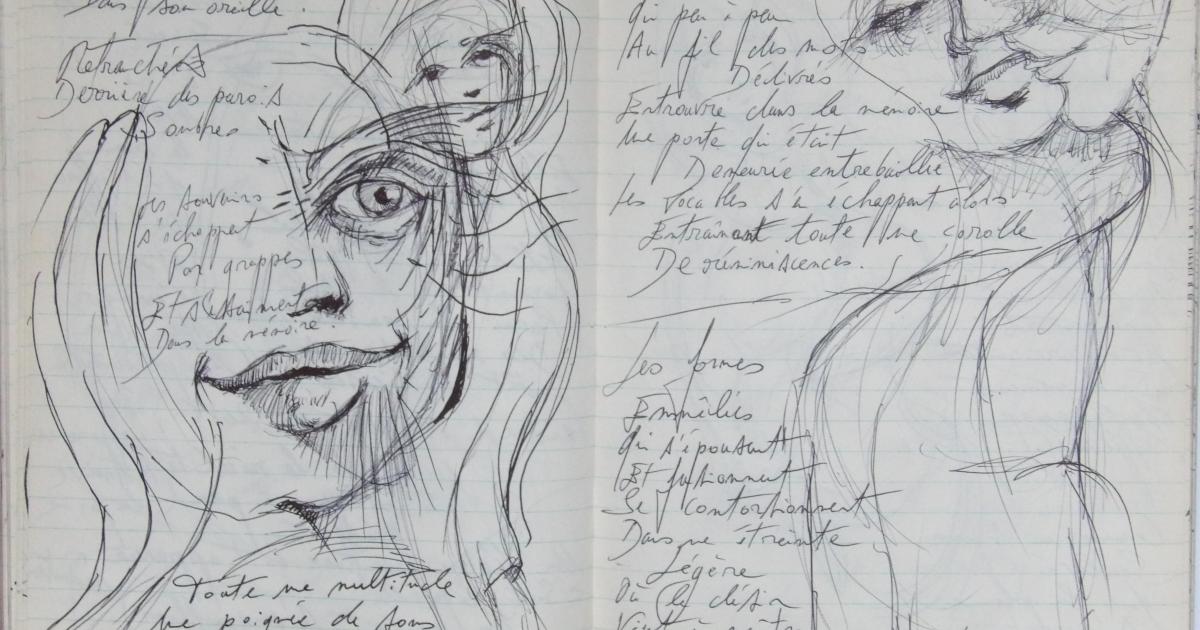 Dans son oreille.
Retranchés
Derrière des parois
Sombres
Les souvenirs
s'échappent
Par grappes
Et
Dans la mémoire.
Toute une multitude
Une poignée de sons
Qui peu à peu
Au fil des mots
Délivrés
Entrouvre dans la mémoire
Une porte qui était
Demeurée entrebaillée
Les vocables s'en échappent alors
Entraînant toute une corolle
De réminiscences.
Les formes
Emmêlées
Qui s'épousent
Et fusionnent
Se contortionnent
Dans une étreinte
Légère
Où le désir